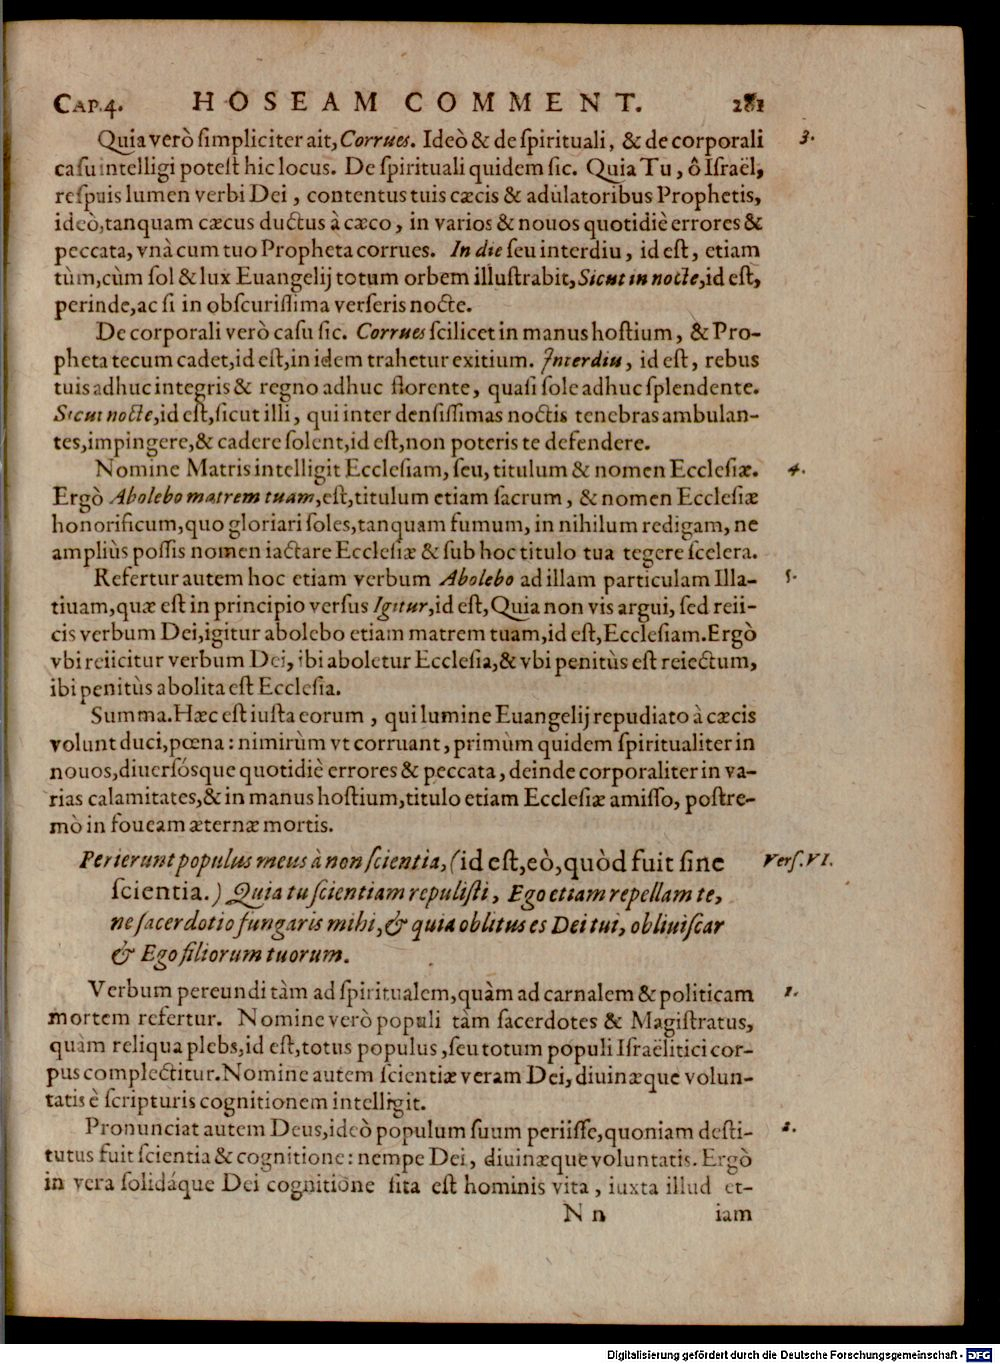 CAP.4. HOSEAM COMMENT. 281
Quia verò ſimpliciter ait, Corrues. Ideò & de ſpirituali, & de corporali 3.
caſu intelligi poteſt hic locus. De ſpirituali quidem ſic. Quia Tu, ô Iſraël,
reſpuis lumen verbi Dei, contentus tuis cæcis & adulatoribus Prophetis,
ideò, tanquam cæcus ductus à cæco, in varios & nouos quotidiè errores &
peccata, vnà cum tuo Propheta corrues. In die ſeu interdiu, id eſt, etiam
tùm, cùm ſol & lux Euangelij totum orbem illuſtrabit, Sicut in nocte, id eſt,
perinde, ac ſi in obſcuriſſima verſeris nocte.
De corporali verò caſu ſic. Corrues ſcilicet in manus hoſtium, & Pro-
pheta tecum cadet, id eſt, in idem trahetur exitium. Interdiu, id eſt, rebus
tuis adhuc integris & regno adhuc florente, quaſi ſole adhuc ſplendente.
Sicut nocte, id eſt, ſicut illi, qui inter denſiſſimas noctis tenebras ambulan-
tes, impingere, & cadere ſolent, id eſt, non poteris te defendere.
Nomine Matris intelligit Eccleſiam, ſeu, titulum & nomen Eccleſiæ. 4.
Ergò Abolebo matrem tuam, eſt, titulum etiam ſacrum, & nomen Eccleſiæ
honorificum, quo gloriari ſoles, tanquam fumum, in nihilum redigam, ne
ampliùs poſſis nomen iactare Eccleſiæ & ſub hoc titulo tua tegere ſcelera.
Refertur autem hoc etiam verbum Abolebo ad illam particulam Illa- 5.
tiuam, quæ eſt in principio verſus Igitur, id eſt, Quia non vis argui, ſed reii-
cis verbum Dei, igitur abolebo etiam matrem tuam, id eſt, Eccleſiam. Ergò
vbi reiicitur verbum Dei, ibi aboletur Eccleſia, & vbi penitùs eſt reiectum,
ibi penitùs abolita eſt Eccleſia.
Summa. Hæc eſt iuſta eorum, qui lumine Euangelij repudiato à cæcis
volunt duci, pœna: nimirùm vt corruant, primùm quidem ſpiritualiter in
nouos, diuerſósque quotidiè errores & peccata, deinde corporaliter in va-
rias calamitates, & in manus hoſtium, titulo etiam Eccleſiæ amiſſo, poſtre-
mò in foueam æternæ mortis.
Perierunt populus meus à non ſcientia, (id eſt, eò, quòd fuit ſine Verſ. VI.
ſcientia.) Quia tu ſcientiam repuliſti, Ego etiam repellam te,
ne ſacerdotio fungaris mihi, & quia oblitus es Dei tui, obliuiſcar
& Ego filiorum tuorum.
Verbum pereundi tàm ad ſpiritualem, quàm ad carnalem & politicam 1.
mortem refertur. Nomine verò populi tàm ſacerdotes & Magiſtratus,
quàm reliqua plebs, id eſt, totus populus, ſeu totum populi Iſraëlitici cor-
pus complectitur. Nomine autem ſcientiæ veram Dei, diuinæque volun-
tatis è ſcripturis cognitionem intelligit.
Pronunciat autem Deus, ideò populum ſuum periiſſe, quoniam deſti- 2.
tutus fuit ſcientia & cognitione: nempe Dei, diuinæque voluntatis. Ergò
in vera ſolidáque Dei cognitione ſita eſt hominis vita, iuxta illud et-
N n iam
Digitalisierung gefördert durch die Deutsche Forschungsgemeinschaft - DFG